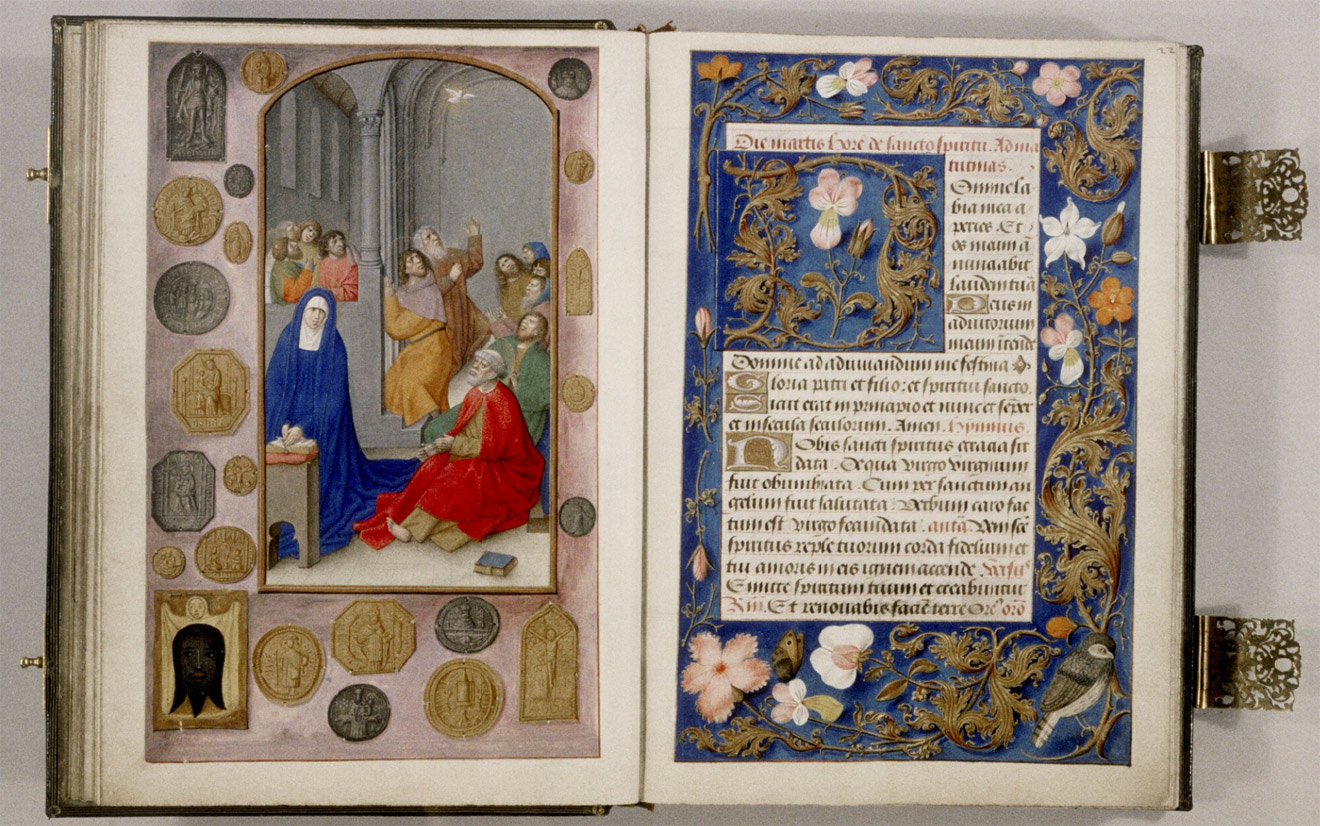 22
Die martis hore de sancto spiritu. Ad ma
tutinas.
Omine la
bia mea a
peries. Et
os meum ā
nunciabit
laudem tuā
Deus in
adiutorium
meum ītende
Domine ad adiuvandum me festina
Gloria patri et filio: et spiritui sancto.
Sicut erat in principio et nunc et semper
et in secula seculorum. Amen. Hympnus.
Nobis sancti spiritus gracia sit
data. De qua virgo virginum
fuit obumbrata. Cum per sanctum an
gelum fuit salutata. Verbum caro fac
tum est virgo fecundata. antā. Veni scē
spiritus reple tuorum corda fidelium et
tui amoris in eis ignem accende. Versus
Emitte spiritum tuum et creabuntur
Rm. Et renovabis faciē terre Ore orō